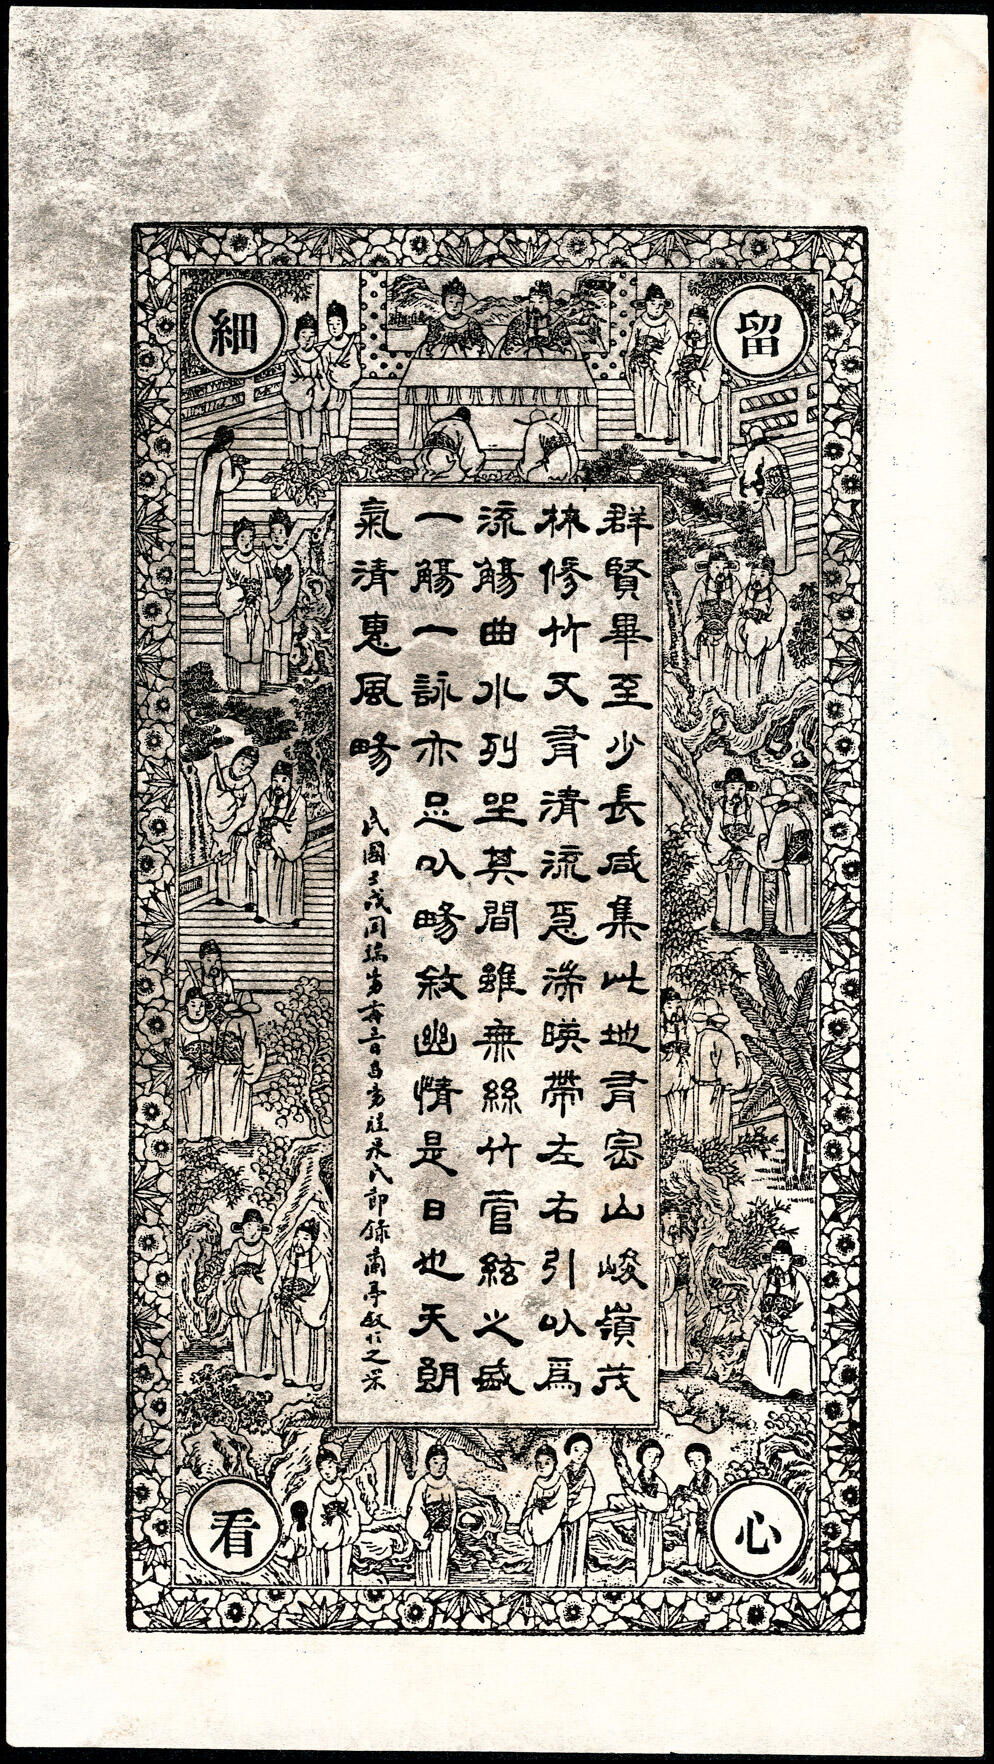 留
心
細
看
群賢畢至少長咸集此地有崇山峻嶺茂
林修竹又有清流急湍暎帶左右引以爲
流觴曲水列坐其間雖無絲竹管絃之盛
一觴一詠亦足以暢敘幽情是日也天朗
氣清惠風暢
民國壬戌
録蘭亭敘